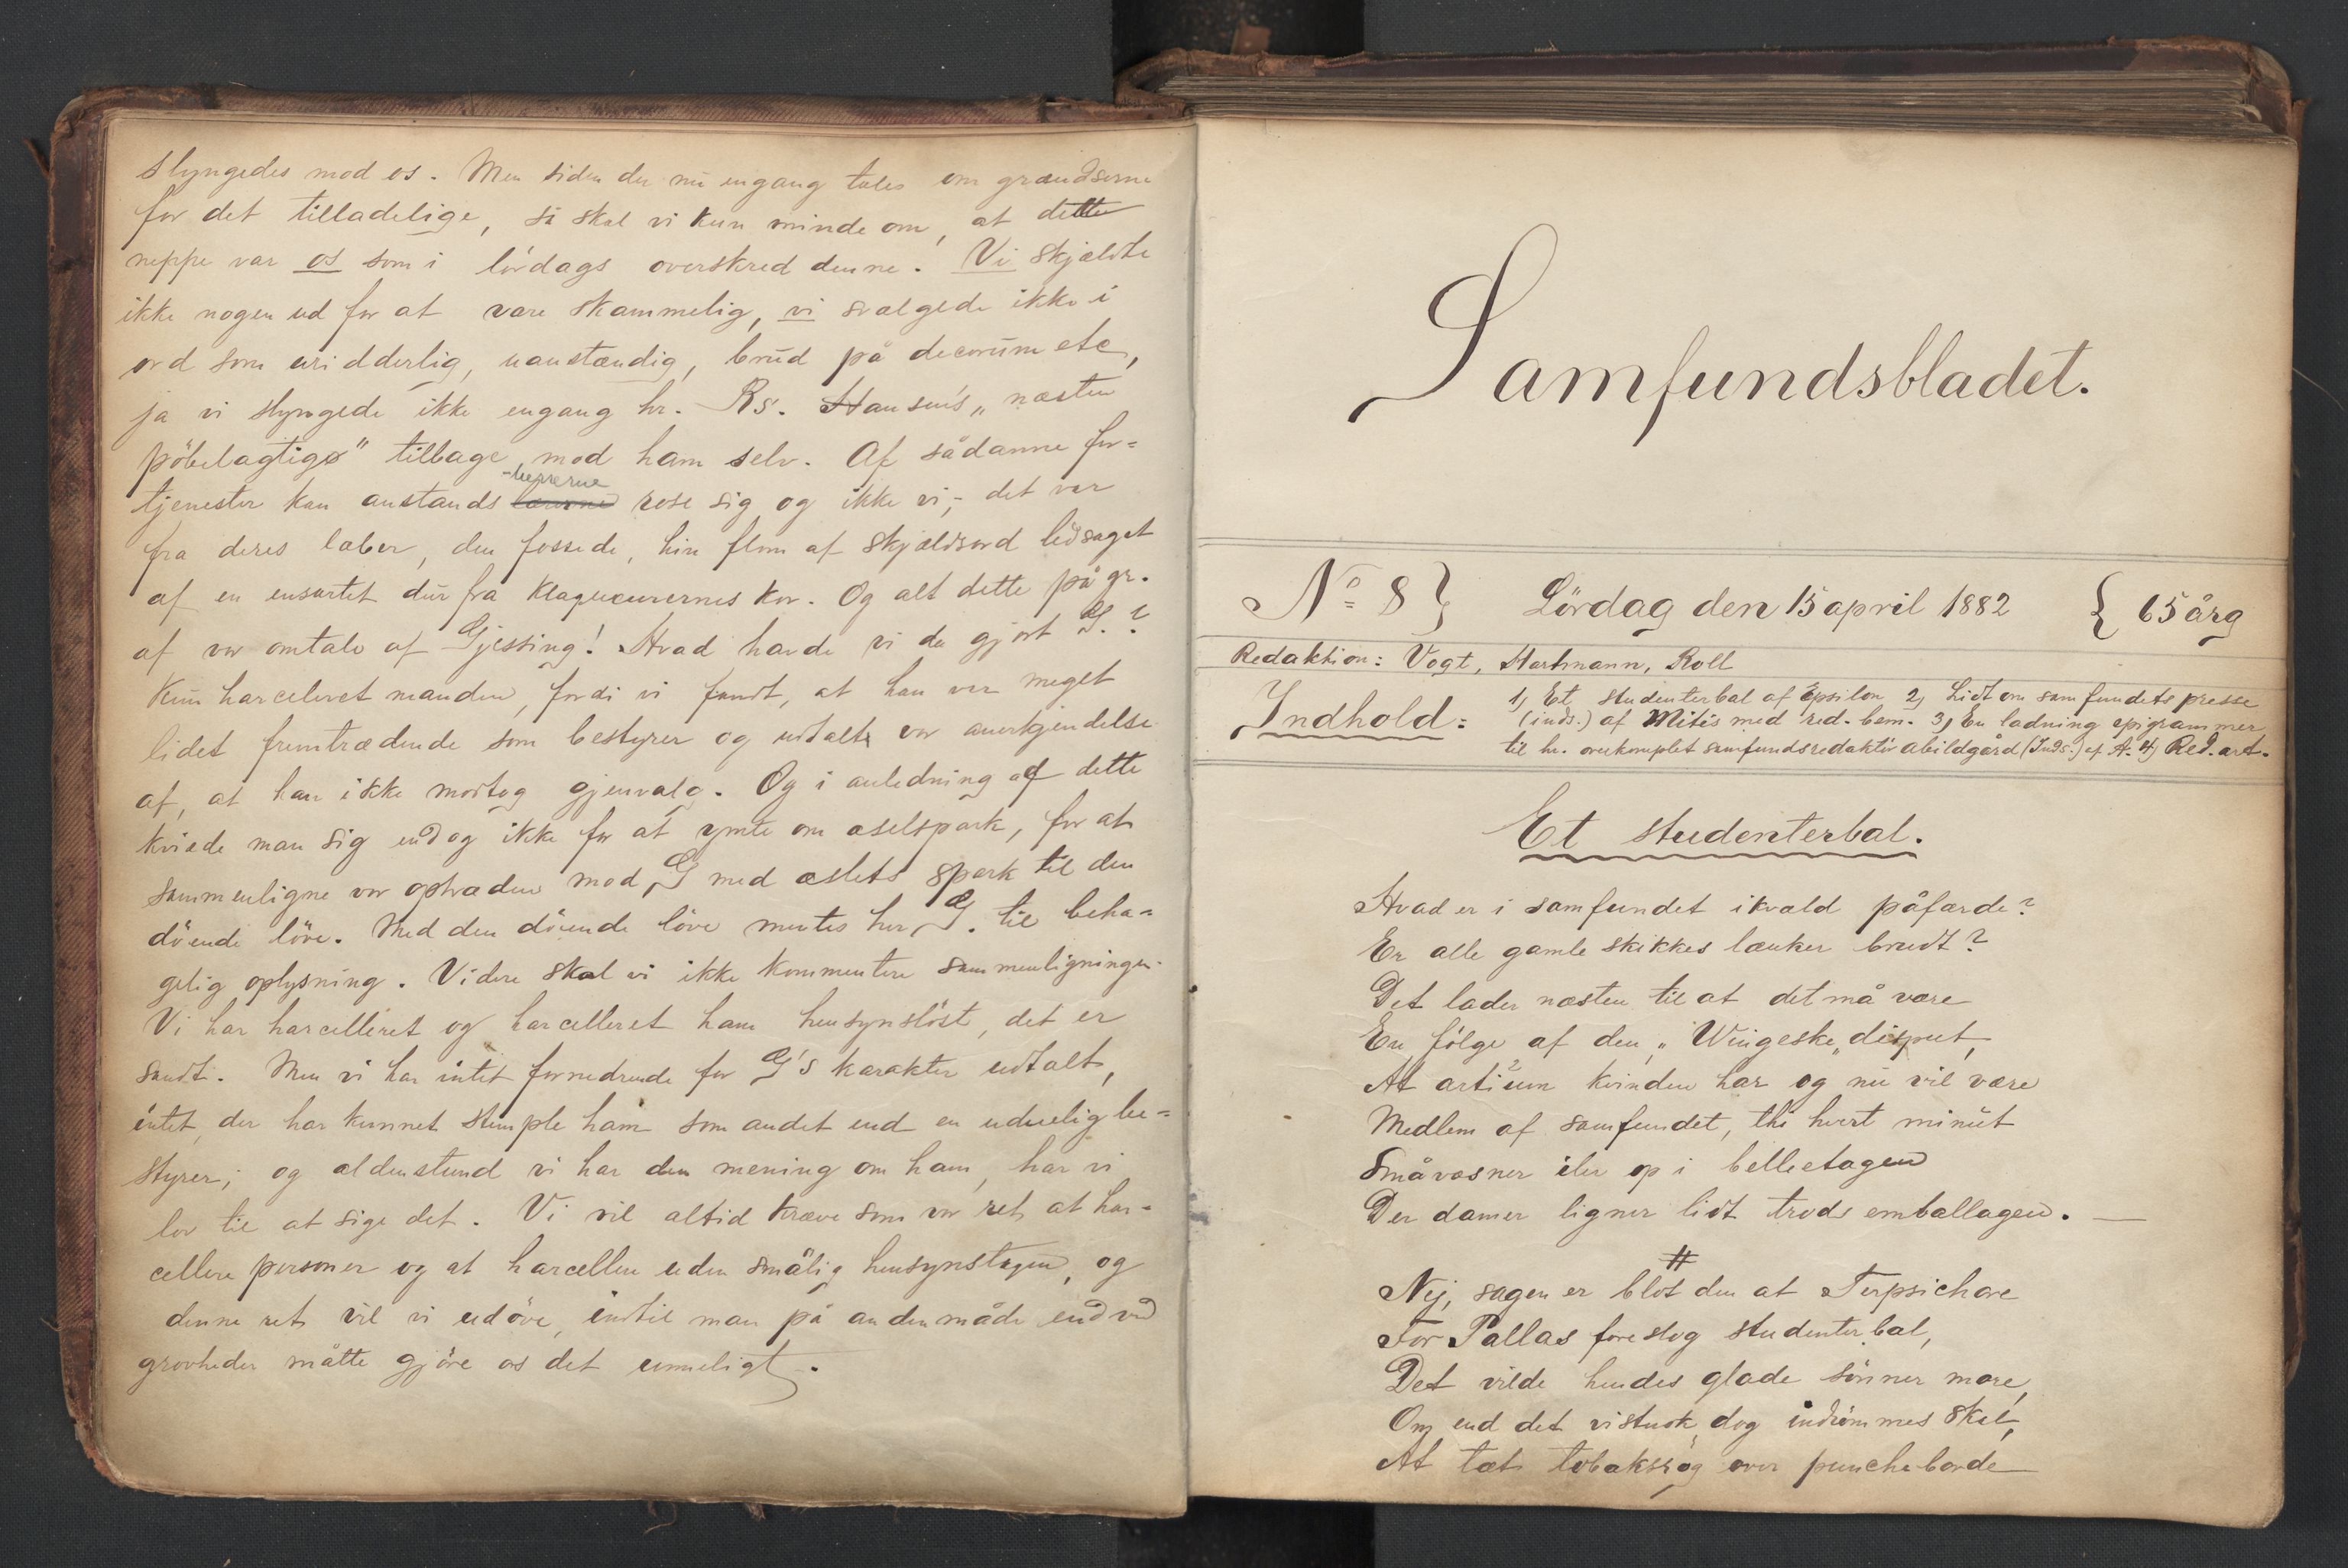 slyngedes mod os. Men siden der nu engang tales om grændserne
for det tilladelige, så skal vi kun minde om, at dette
neppe var os som i lördags overskred denne. Vi skjældte
ikke nogen ud for at være skammelig, vi svælgede ikke i
ord som uridderlig, uanstændig, brud på decorum etc,
ja vi slyngede ikke engang hr. Rs. Hansens „næsten
pöbelagtige" tilbage mod ham selv. Af sådanne for=
-herrerne
tjenester kan anstands rose sig og ikke vi; det var
fra deres læber, den fossede, hin flom af skjældsord ledsaget
af en ensartet dur fra klaqueurernes kor. Og alt dette på gr.
af vor omtale af Gjessing! Hvad havde vi da gjort G.?
Kun harceleret manden, fordi vi fandt, at han var meget
lidet fremtrædende som bestyrer og udtalt vor anerkjendelse
af, at han ikke modtog gjenvalg. Og i anledning af dette
kviede man sig endog ikke for at ymte om æselspark, for at
sammenligne vor optræden mod G med æslets spark til den
döende löve. Med den döende löve mentes hr G. til beha=
gelig oplysning. Videre skal vi ikke kommentere sammenligningen.
Vi har harcelleret og harcelleret ham hensynslöst, det er
sandt. Men vi har intet fornedrende for G's karakter udtalt,
intet der har kunnet stemple ham som andet end en uduelig be=
styrer; og aldenstund vi har den mening om ham, har vi
lov til at sige det. Vi vil altid kræve som vor ret at har-
cellere personer og at harcellere uden smålig hensynstagen, og
denne ret vil vi udöve, indtil man på anden måde end ved
grovheder måtte gjöre os det umuligt.
Samfundsbladet.
No 8} Lördag den 15 april 1882 {65 årg
Redaktion: Vogt, Hartmann, Roll
Indhold: 1) Et studenterbal af Epsilon 2) Lidt om samfundets presse
(inds.) af Mitis med red. bem. 3) En ladning epigrammer
til hr. overkomplet samfundsredaktör Abildgård (Inds.) af A. 4) Red. art.
Et studenterbal.
Hvad er i samfundet ikvæld påfærde?
Er alle gamle skikkes lænker brudt?
Det lader næsten til at det må være
En fölge af den „Wingeske„ disput,
At artium kvinden har og nu vil være
Medlem af samfundet, thi hvert minut
Småvæsner iler op i belletagen
Der damer ligner lidt trods emballagen. —
#
Nej, sagen er blot den at Terpsichore
For Pallas foreslog studenterbal,
Det vilde hendes glade sönner more,
Om end det vistnok dog indrömmes skal,
At tæt tobaksrög over puncheborde